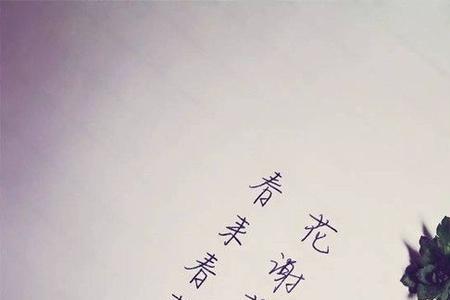 花谢
春来春